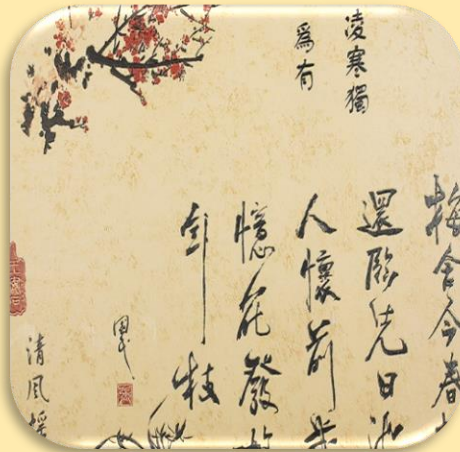 凌寒獨
爲有
梅含今春
還臨先日
人懷前
憶花發故
年枝
清風